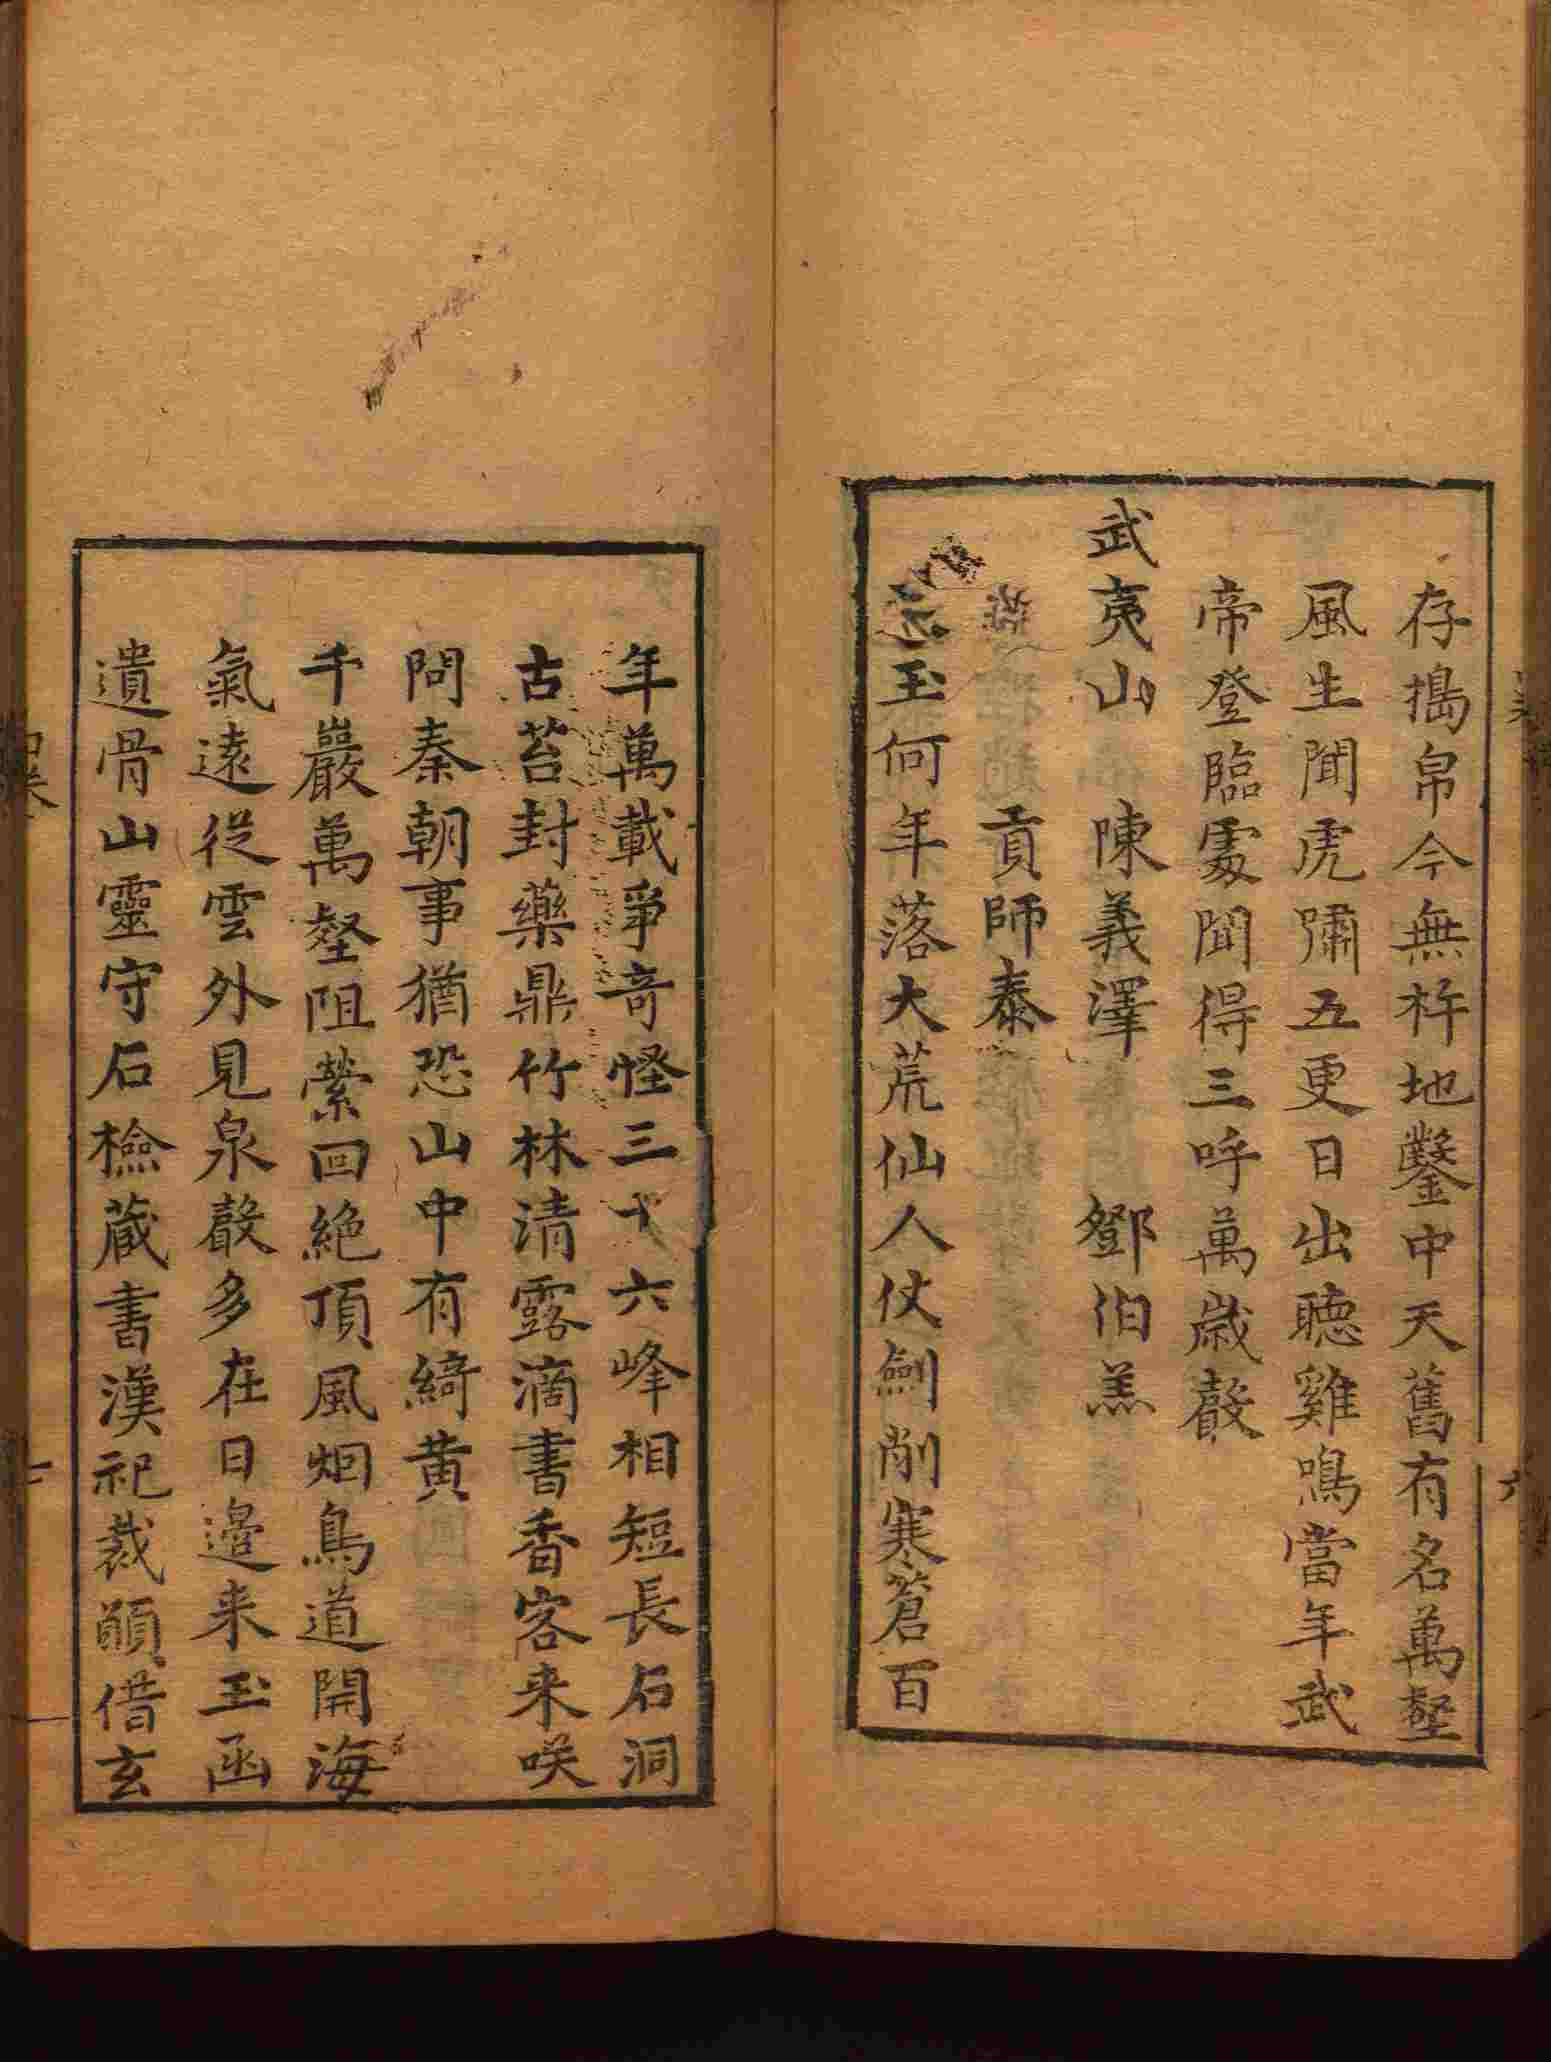 存搗帛今無杵地鑿中天舊有名萬壑
風生聞虎嘯五更日出聽雞鳴當年武
帝登臨處聞得三呼萬歲聲
武夷山 陳義澤 鄧伯羔
貢師泰
玉何年落大荒仙人仗劍削寒蒼百
年萬載爭奇怪三十六峰相短長石洞
古苔封藥鼎竹林清露滴書香客来咲
問秦朝事猶恐山中有綺黄
千巖萬壑阻縈回絶頂風烟鳥道開海
氣遠從雲外見泉聲多在日邉来玉函
遺骨山靈守石檢蔵書漢祀裁頋借玄